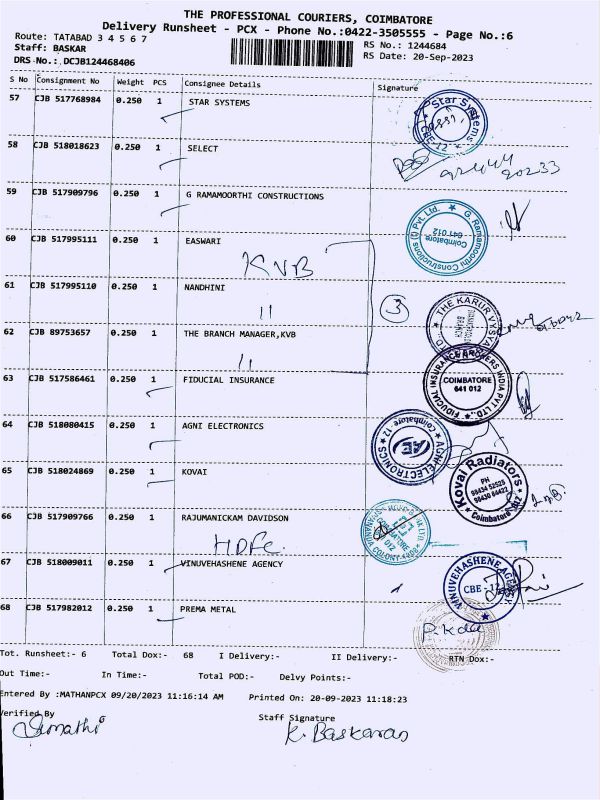 THE PROFESSIONAL COURIERS, COIMBATORE
Delivery Runsheet - PCX - Phone No.:0422-3505555 - Page No.:6
Route: TATABAD 3 4 5 6 7
RS No.: 1244684
Staff: BASKAR
RS Date: 20-Sep-2023
DRS No.: DCJB124468406
S No Consignment No Weight PCS Consignee Details Signature
57 CJB 517768984 0.250 1 STAR SYSTEMS
Star Systems
CBE-12
58 CJB 518018623 0.250 1 SELECT
90233
59 CJB 517909796 0.250 1 G RAMAMOORTHI CONSTRUCTIONS
G. Ramamoorthi Constructions (I) Pvt. Ltd.
Coimbatore
641 012
60 CJB 517995111 0.250 1 EASWARI
KVB
61 CJB 517995110 0.250 1 NANDHINI
11
3
THE KARUR VYSYA
BRANCH
62 CJB 89753657 0.250 1 THE BRANCH MANAGER,KVB
11
63 CJB 517586461 0.250 1 FIDUCIAL INSURANCE
FIDUCIAL INSURANCE BROKERS INDIA PVT LTD.
COIMBATORE
641 012
64 CJB 518080415 0.250 1 AGNI ELECTRONICS
AGNI ELECTRONICS
Coimbatore-12
AE
65 CJB 518024869 0.250 1 KOVAI
Kovai Radiators
PH
98434 52525
98430 84422
Coimbatore
66 CJB 517909766 0.250 1 RAJUMANICKAM DAVIDSON
HDFC
COIMBATORE
012
67 CJB 518009011 0.250 1 VINUVEHASHENE AGENCY
VINUVEHASHENE AGENCY
CBE - 12
68 CJB 517982012 0.250 1 PREMA METAL
Tot. Runsheet:- 6 Total Dox:- 68 I Delivery:- II Delivery:- RTN Dox:-
Out Time:- In Time:- Total POD:- Delvy Points:-
Entered By :MATHANPCX 09/20/2023 11:16:14 AM Printed On: 20-09-2023 11:18:23
Verified By Staff Signature
K. Baskaran